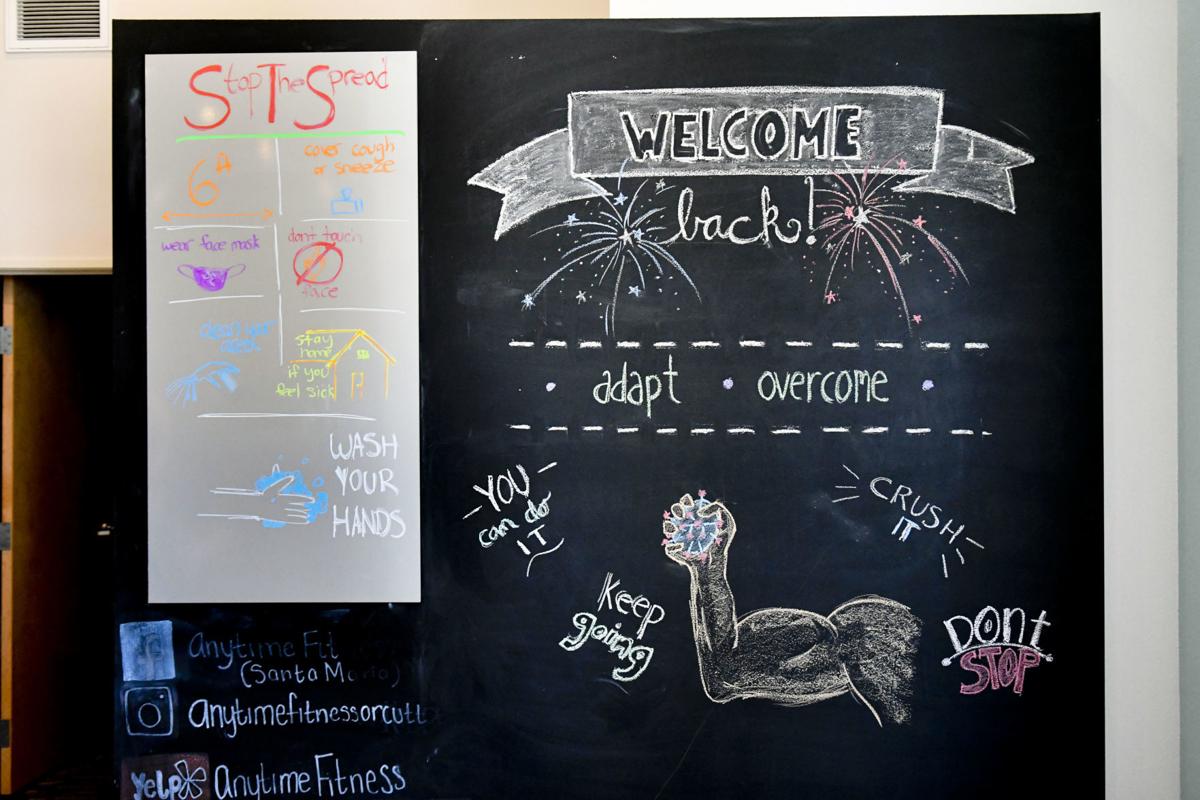 Stop The Spread
6ft
cover cough
or sneeze
wear face mask
dont touch
face
clean your
area
stay
home
if you
feel sick
WASH
YOUR
HANDS
Anytime Fit
(Santa Maria)
anytimefitnessorcutt
yelp Anytime Fitness
WELCOME
back!
adapt • overcome
YOU
can do
IT
CRUSH
IT
Keep
going
DONT
STOP